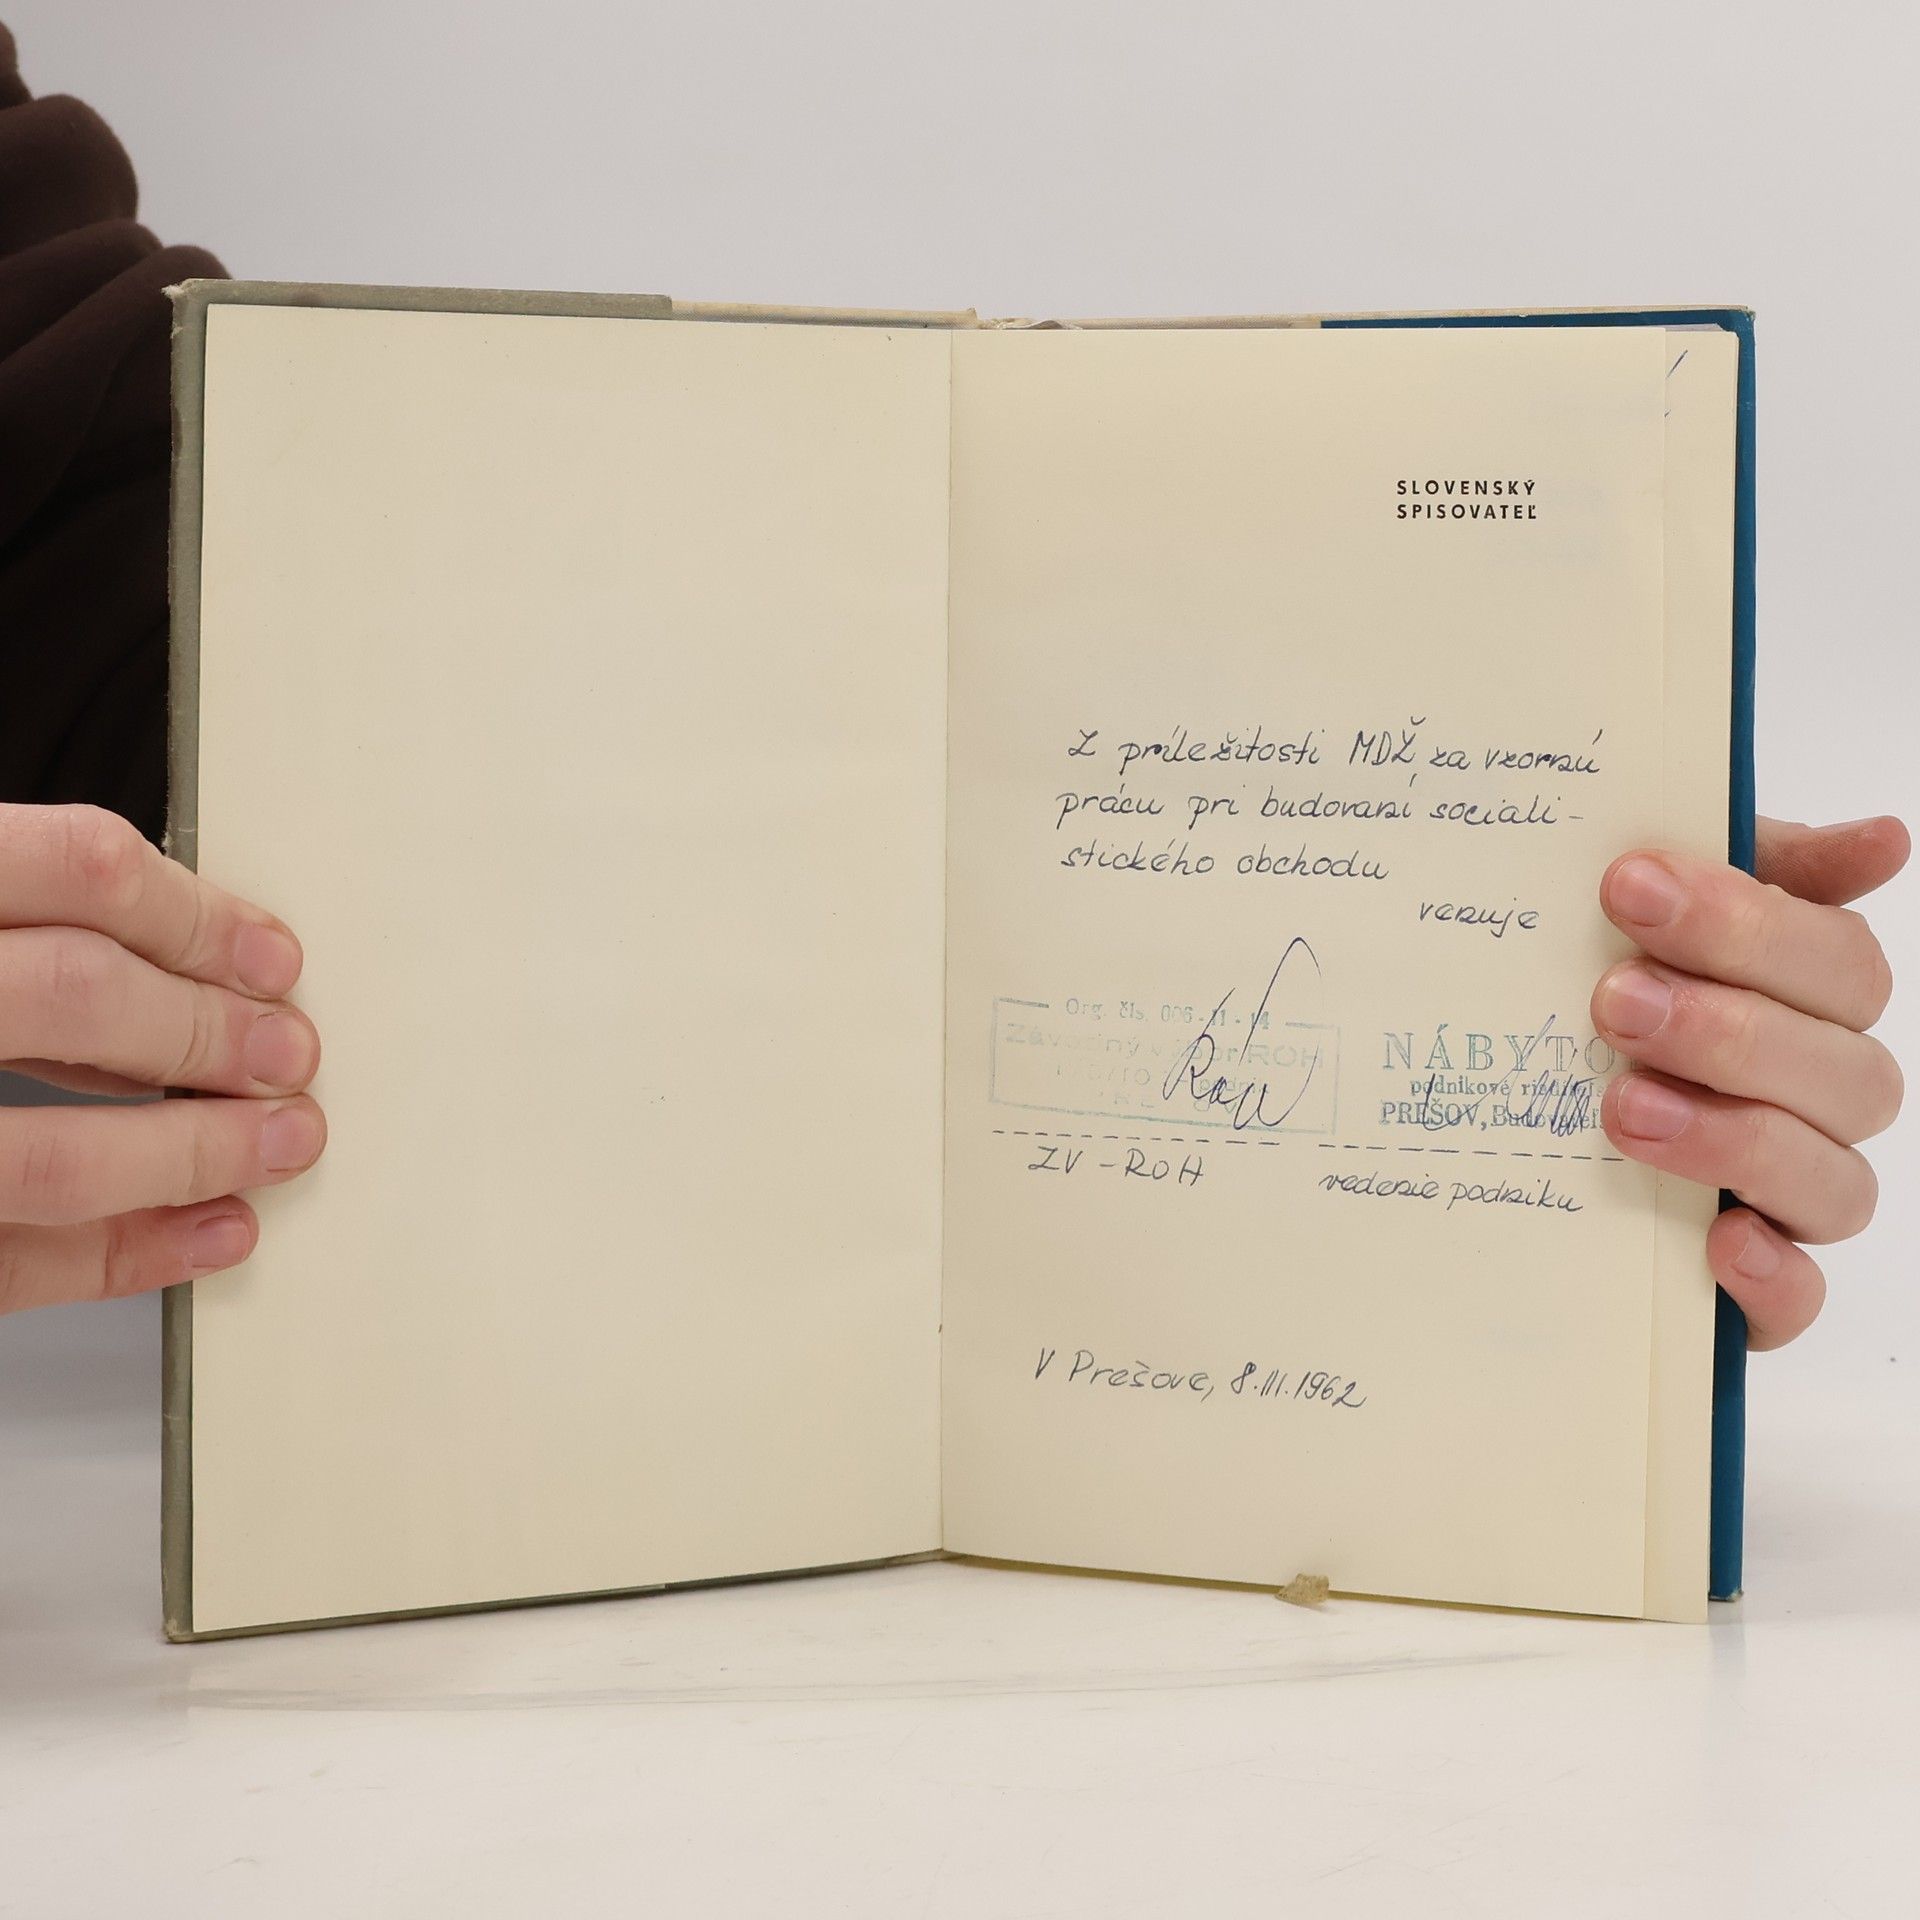 SLOVENSKÝ
SPISOVATEĽ
Z príležitosti MDŽ za vzornú
prácu pri budovaní sociali-
stického obchodu
venuje
Org. čís. 006-11-14
Závodný výbor ROH
NÁBYTO
podnikové riaditeľs
PREŠOV, Budovateľs
ZV - ROH
vedenie podniku
V Prešove, 8.III.1962